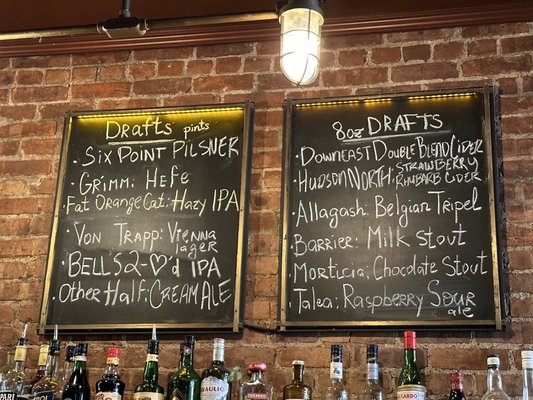 Drafts pints
Six Point Pilsner
Grimm: Hefe
Fat Orange Cat: Hazy IPA
Von Trapp: Vienna
lager
Bell's 2-♡'d IPA
Other Half: Cream Ale
8oz Drafts
Downeast Double Blend Cider
Hudson North: Strawberry
Rhubarb Cider
Allagash: Belgian Tripel
Barrier: Milk Stout
Morticia: Chocolate Stout
Talea: Raspberry Sour
ale
BRAULIO